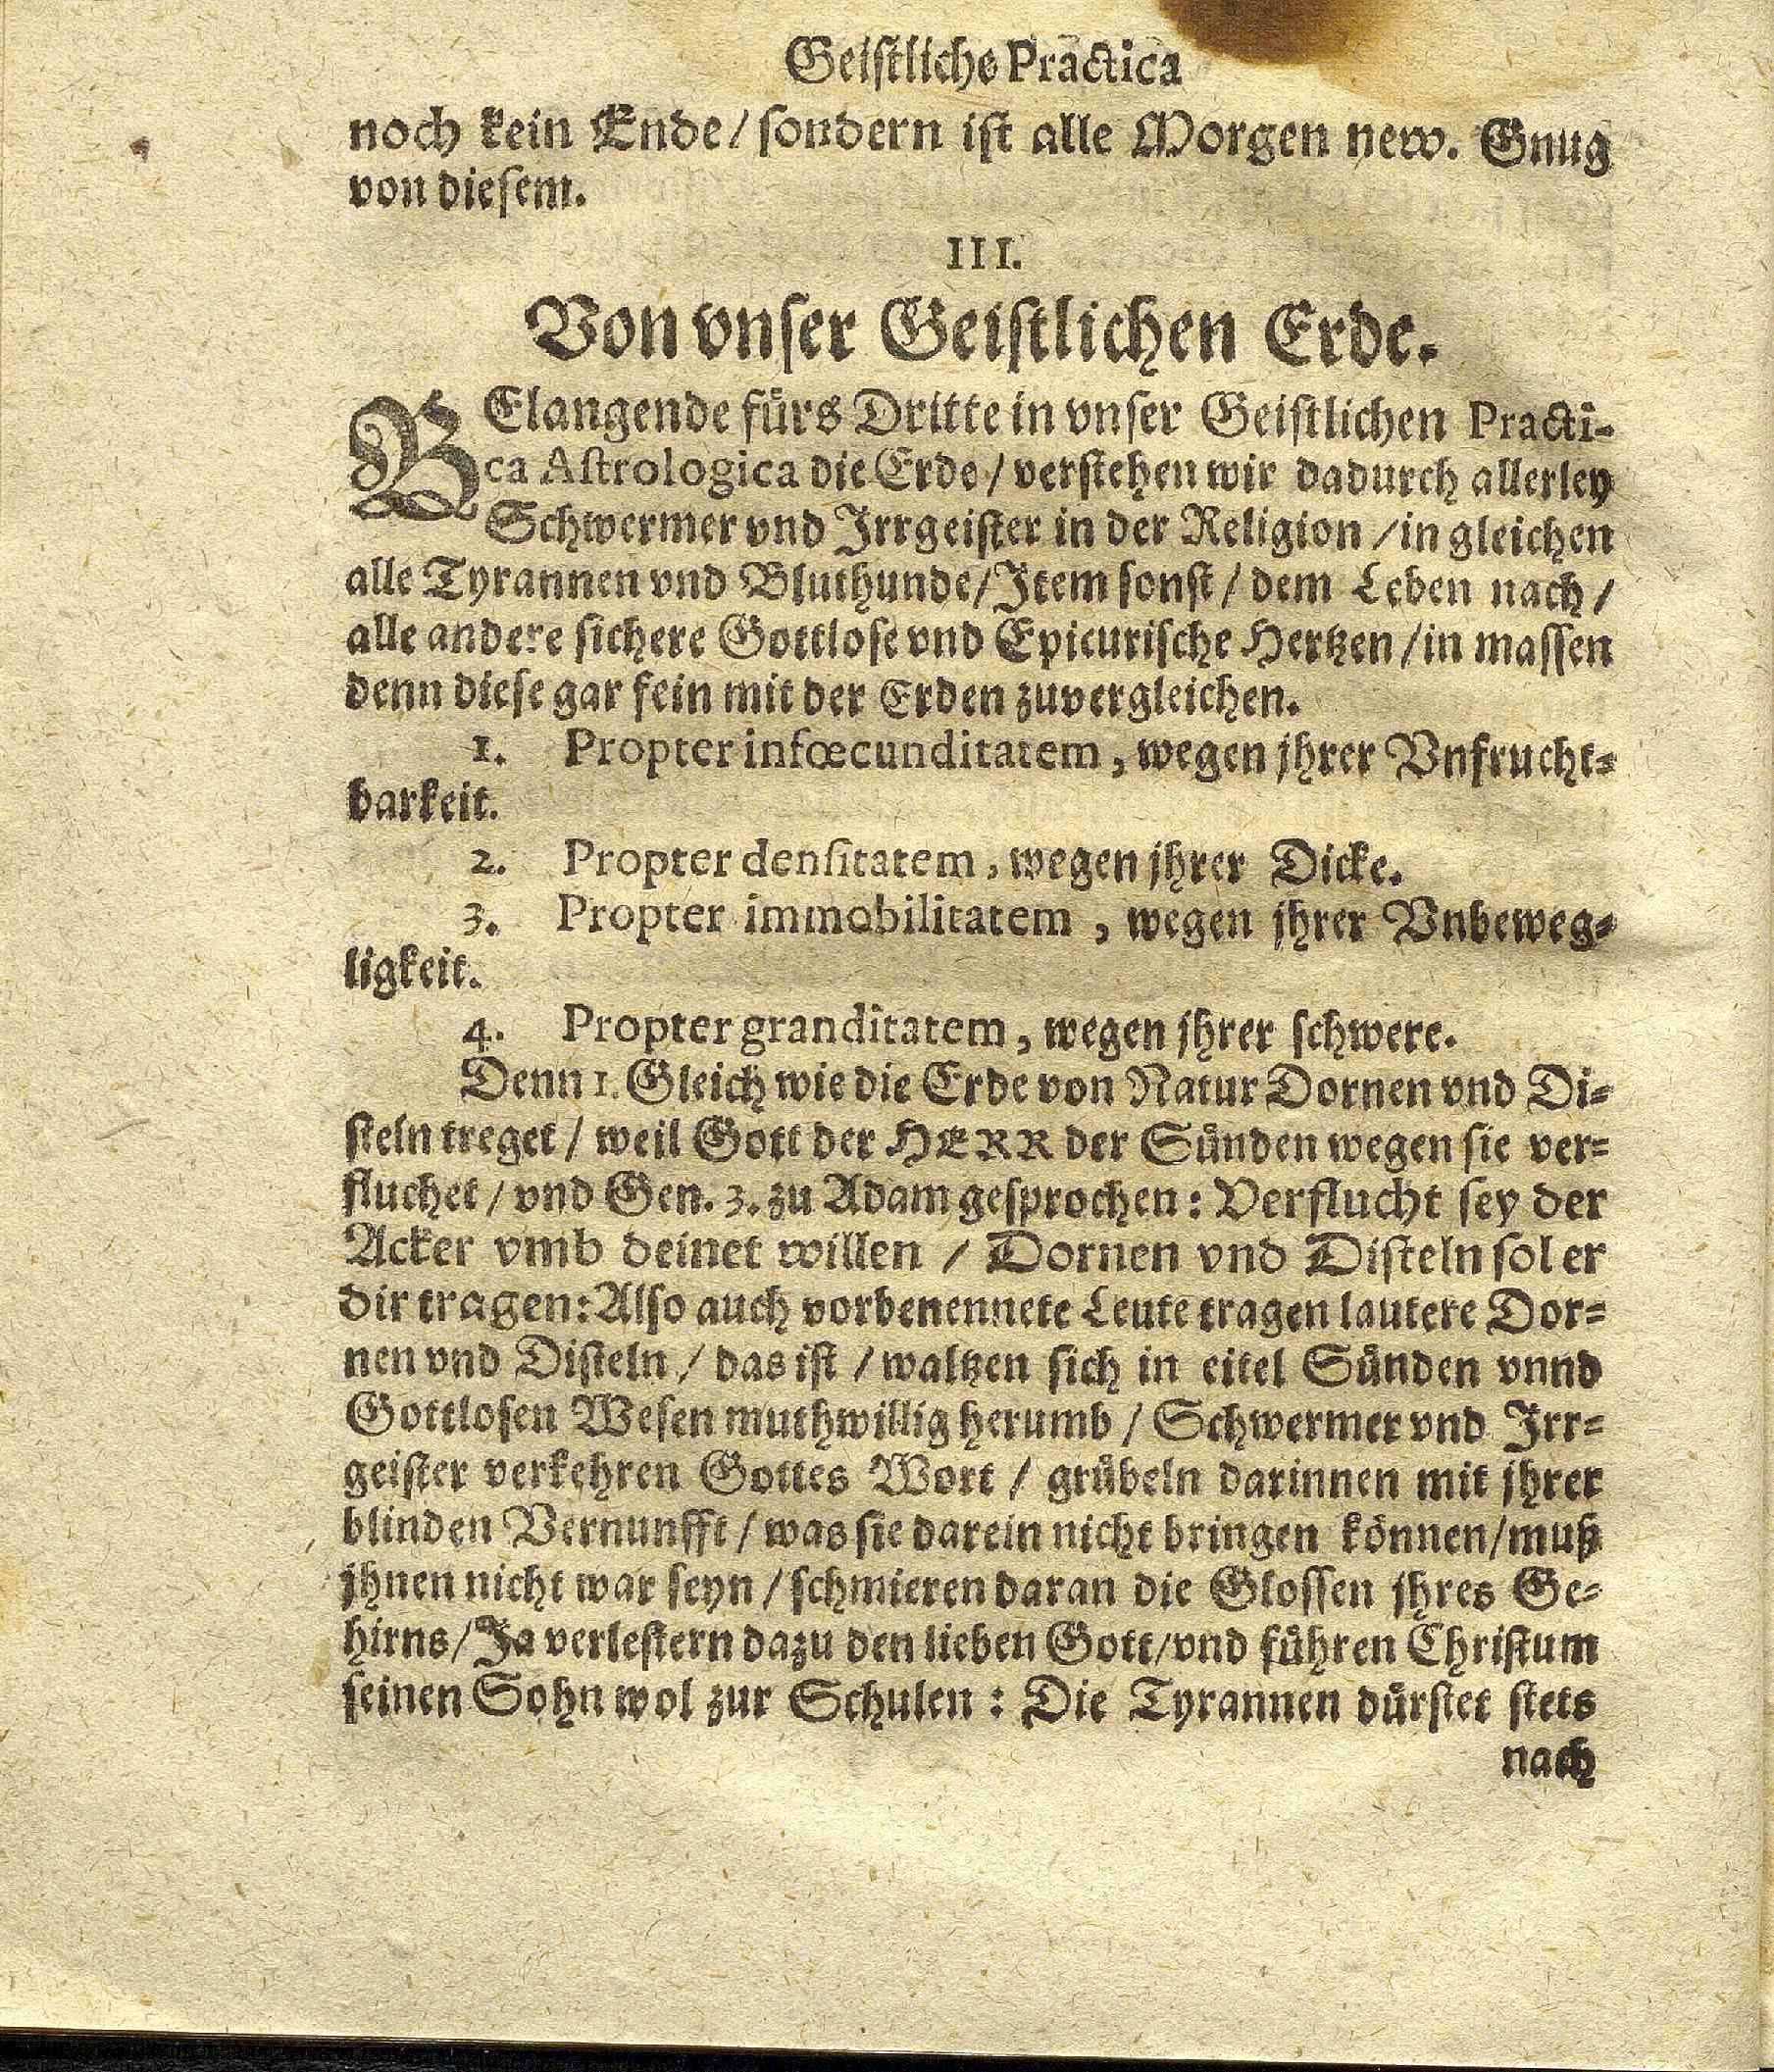 Geistliche Practica
noch kein Ende / sondern ist alle Morgen new. Gnug
von diesem.
III.
Von vnser Geistlichen Erde.
BElangende fürs Dritte in vnser Geistlichen Practi-
ca Astrologica die Erde / verstehen wir dadurch allerley
Schwermer vnd Irrgeister in der Religion / in gleichen
alle Tyrannen vnd Bluthunde / Item sonst / dem Leben nach /
alle andere sichere Gottlose vnd Epicurische Hertzen / in massen
denn diese gar fein mit der Erden zuvergleichen.
1. Propter infœcunditatem, wegen jhrer Vnfrucht-
barkeit.
2. Propter densitatem, wegen jhrer Dicke.
3. Propter immobilitatem, wegen jhrer Vnbeweg-
ligkeit.
4. Propter granditatem, wegen jhrer schwere.
Denn 1. Gleich wie die Erde von Natur Dornen vnd Di-
steln treget / weil Gott der HERR der Sünden wegen sie ver-
fluchet / vnd Gen. 3. zu Adam gesprochen: Verflucht sey der
Acker vmb deinet willen / Dornen vnd Disteln sol er
dir tragen: Also auch vorbenennete Leute tragen lautere Dor-
nen vnd Disteln / das ist / waltzen sich in eitel Sünden vnnd
Gottlosen Wesen muthwillig herumb / Schwermer vnd Irr-
geister verkehren Gottes Wort / grübeln darinnen mit jhrer
blinden Vernunfft / was sie darein nicht bringen können / muß
jhnen nicht war seyn / schmieren daran die Glossen jhres Ge-
hirns / Ja verlestern dazu den lieben Gott / vnd führen Christum
seinen Sohn wol zur Schulen: Die Tyrannen dürstet stets
nach